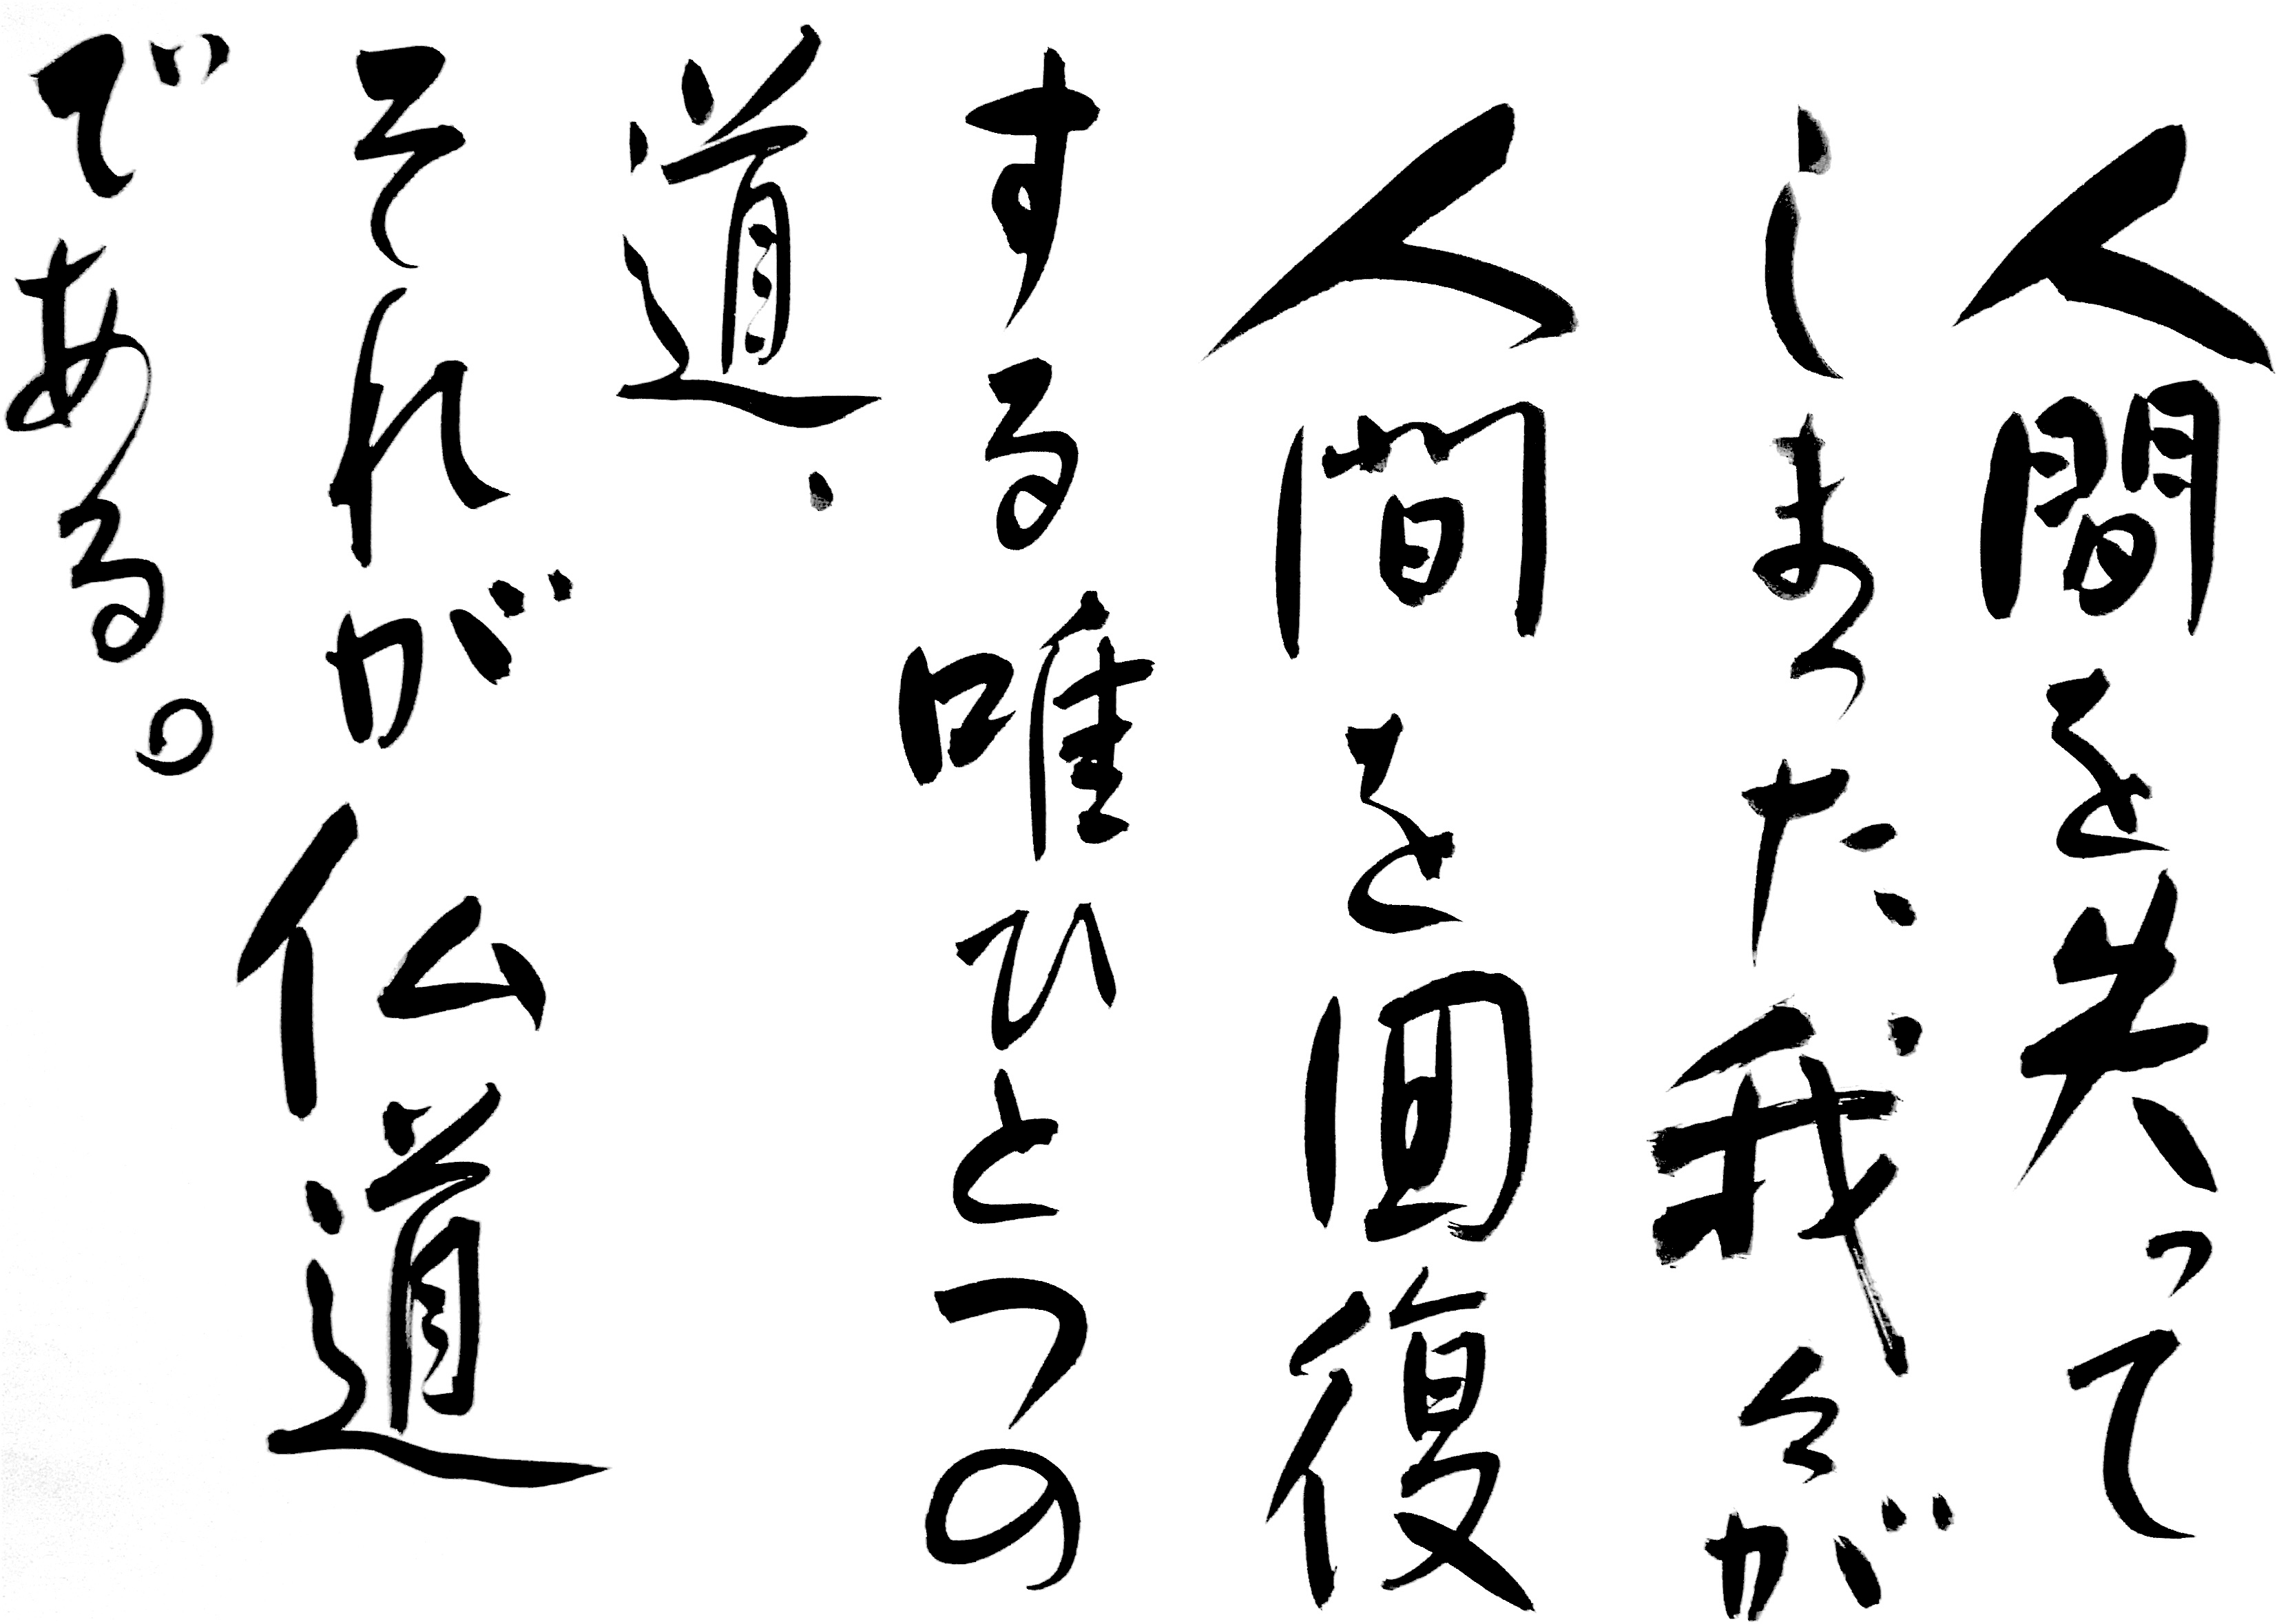 人間を失って
しまった我々が
人間を回復
する唯ひとつの
道、
それが仏道
である。